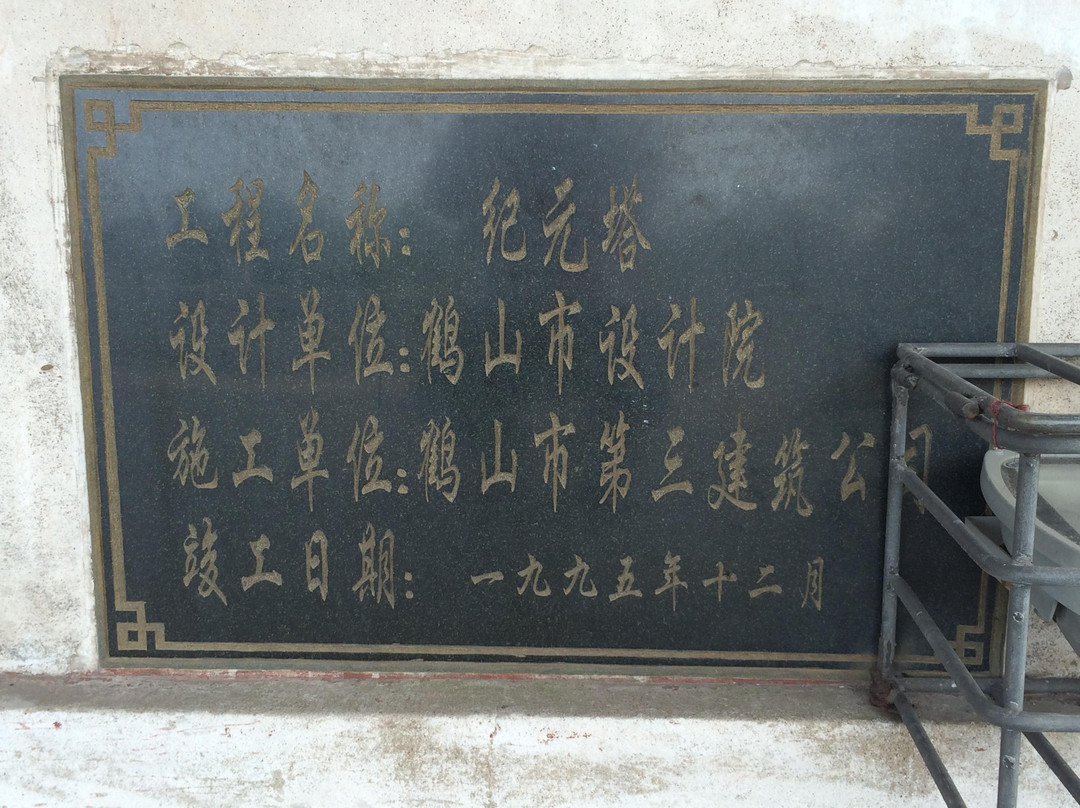 工程名称: 纪元塔
设计单位:鹤山市设计院
施工单位:鹤山市第三建筑公司
竣工日期: 一九九五年十二月